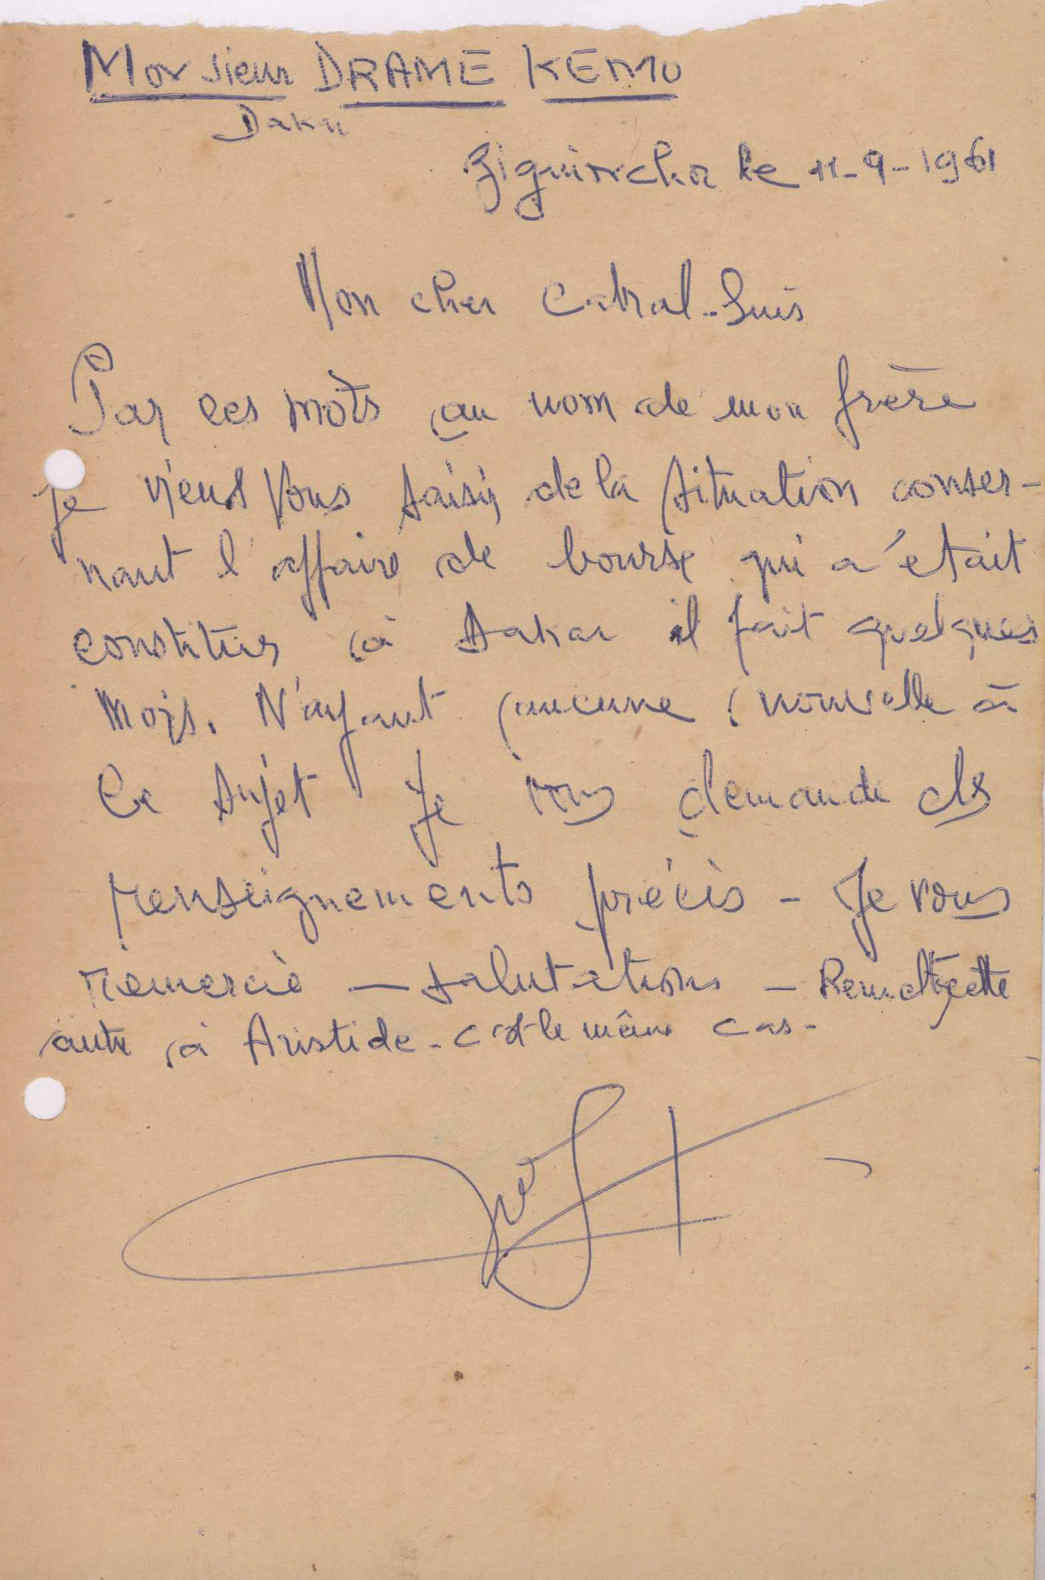 Monsieur DRAME KEMO
Ziguinchor le 11-9-1961
Mon cher Cabral-Luis
Par ces mots au nom de mon frère
je viens vous saisir de la situation conser-
nant l'affaire de bourse qui a était
constituer à Dakar il fait quelques
mois. N'ayant aucune nouvelle à
ce sujet Je vous demande des
renseignements précis - Je vous
remercie — salutations - Remettez cette
autre à Aristide - c'est le même cas -